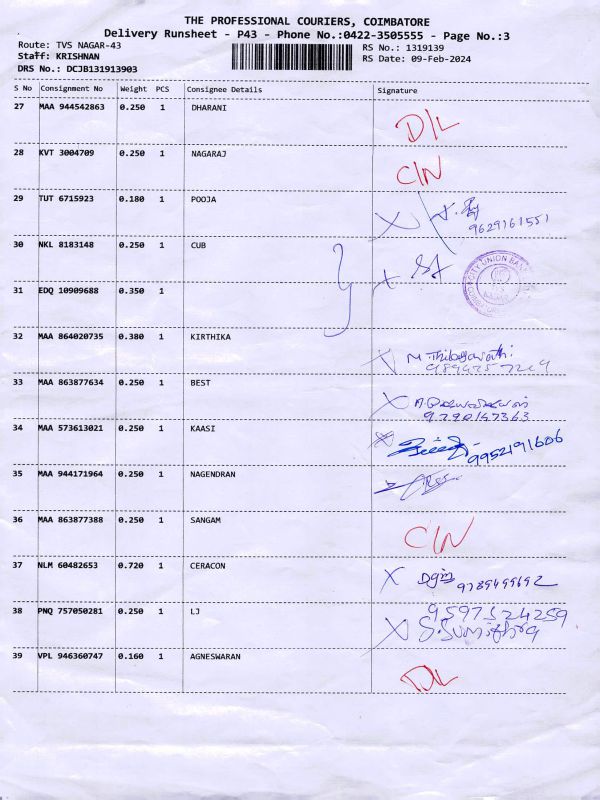 THE PROFESSIONAL COURIERS, COIMBATORE
Delivery Runsheet - P43 - Phone No.:0422-3505555 - Page No.:3
Route: TVS NAGAR-43
RS No.: 1319139
Staff: KRISHNAN
RS Date: 09-Feb-2024
DRS No.: DCJB131913903
S No Consignment No Weight PCS Consignee Details Signature
27 MAA 944542863 0.250 1 DHARANI D/L
28 KVT 3004709 0.250 1 NAGARAJ C/N
29 TUT 6715923 0.180 1 POOJA
9629161551
30 NKL 8183148 0.250 1 CUB
CITY UNION BANK
31 EDQ 10909688 0.350 1
32 MAA 864020735 0.380 1 KIRTHIKA
33 MAA 863877634 0.250 1 BEST
34 MAA 573613021 0.250 1 KAASI 9952191606
35 MAA 944171964 0.250 1 NAGENDRAN
36 MAA 863877388 0.250 1 SANGAM C/N
37 NLM 60482653 0.720 1 CERACON 9789499692
38 PNQ 757050281 0.250 1 LJ 9597524259
S.Sumithra
39 VPL 946360747 0.160 1 AGNESWARAN D/L